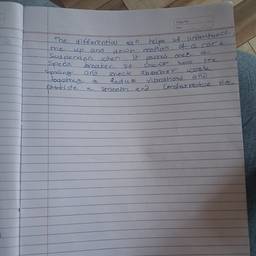 The differential eqn helps us understand
the up and down motion of a car's
suspension when it passes over a
speed breaker. It shows how the
springs and shock absorber work
together to reduce vibrations and
provide a smooth and comfortable ride.